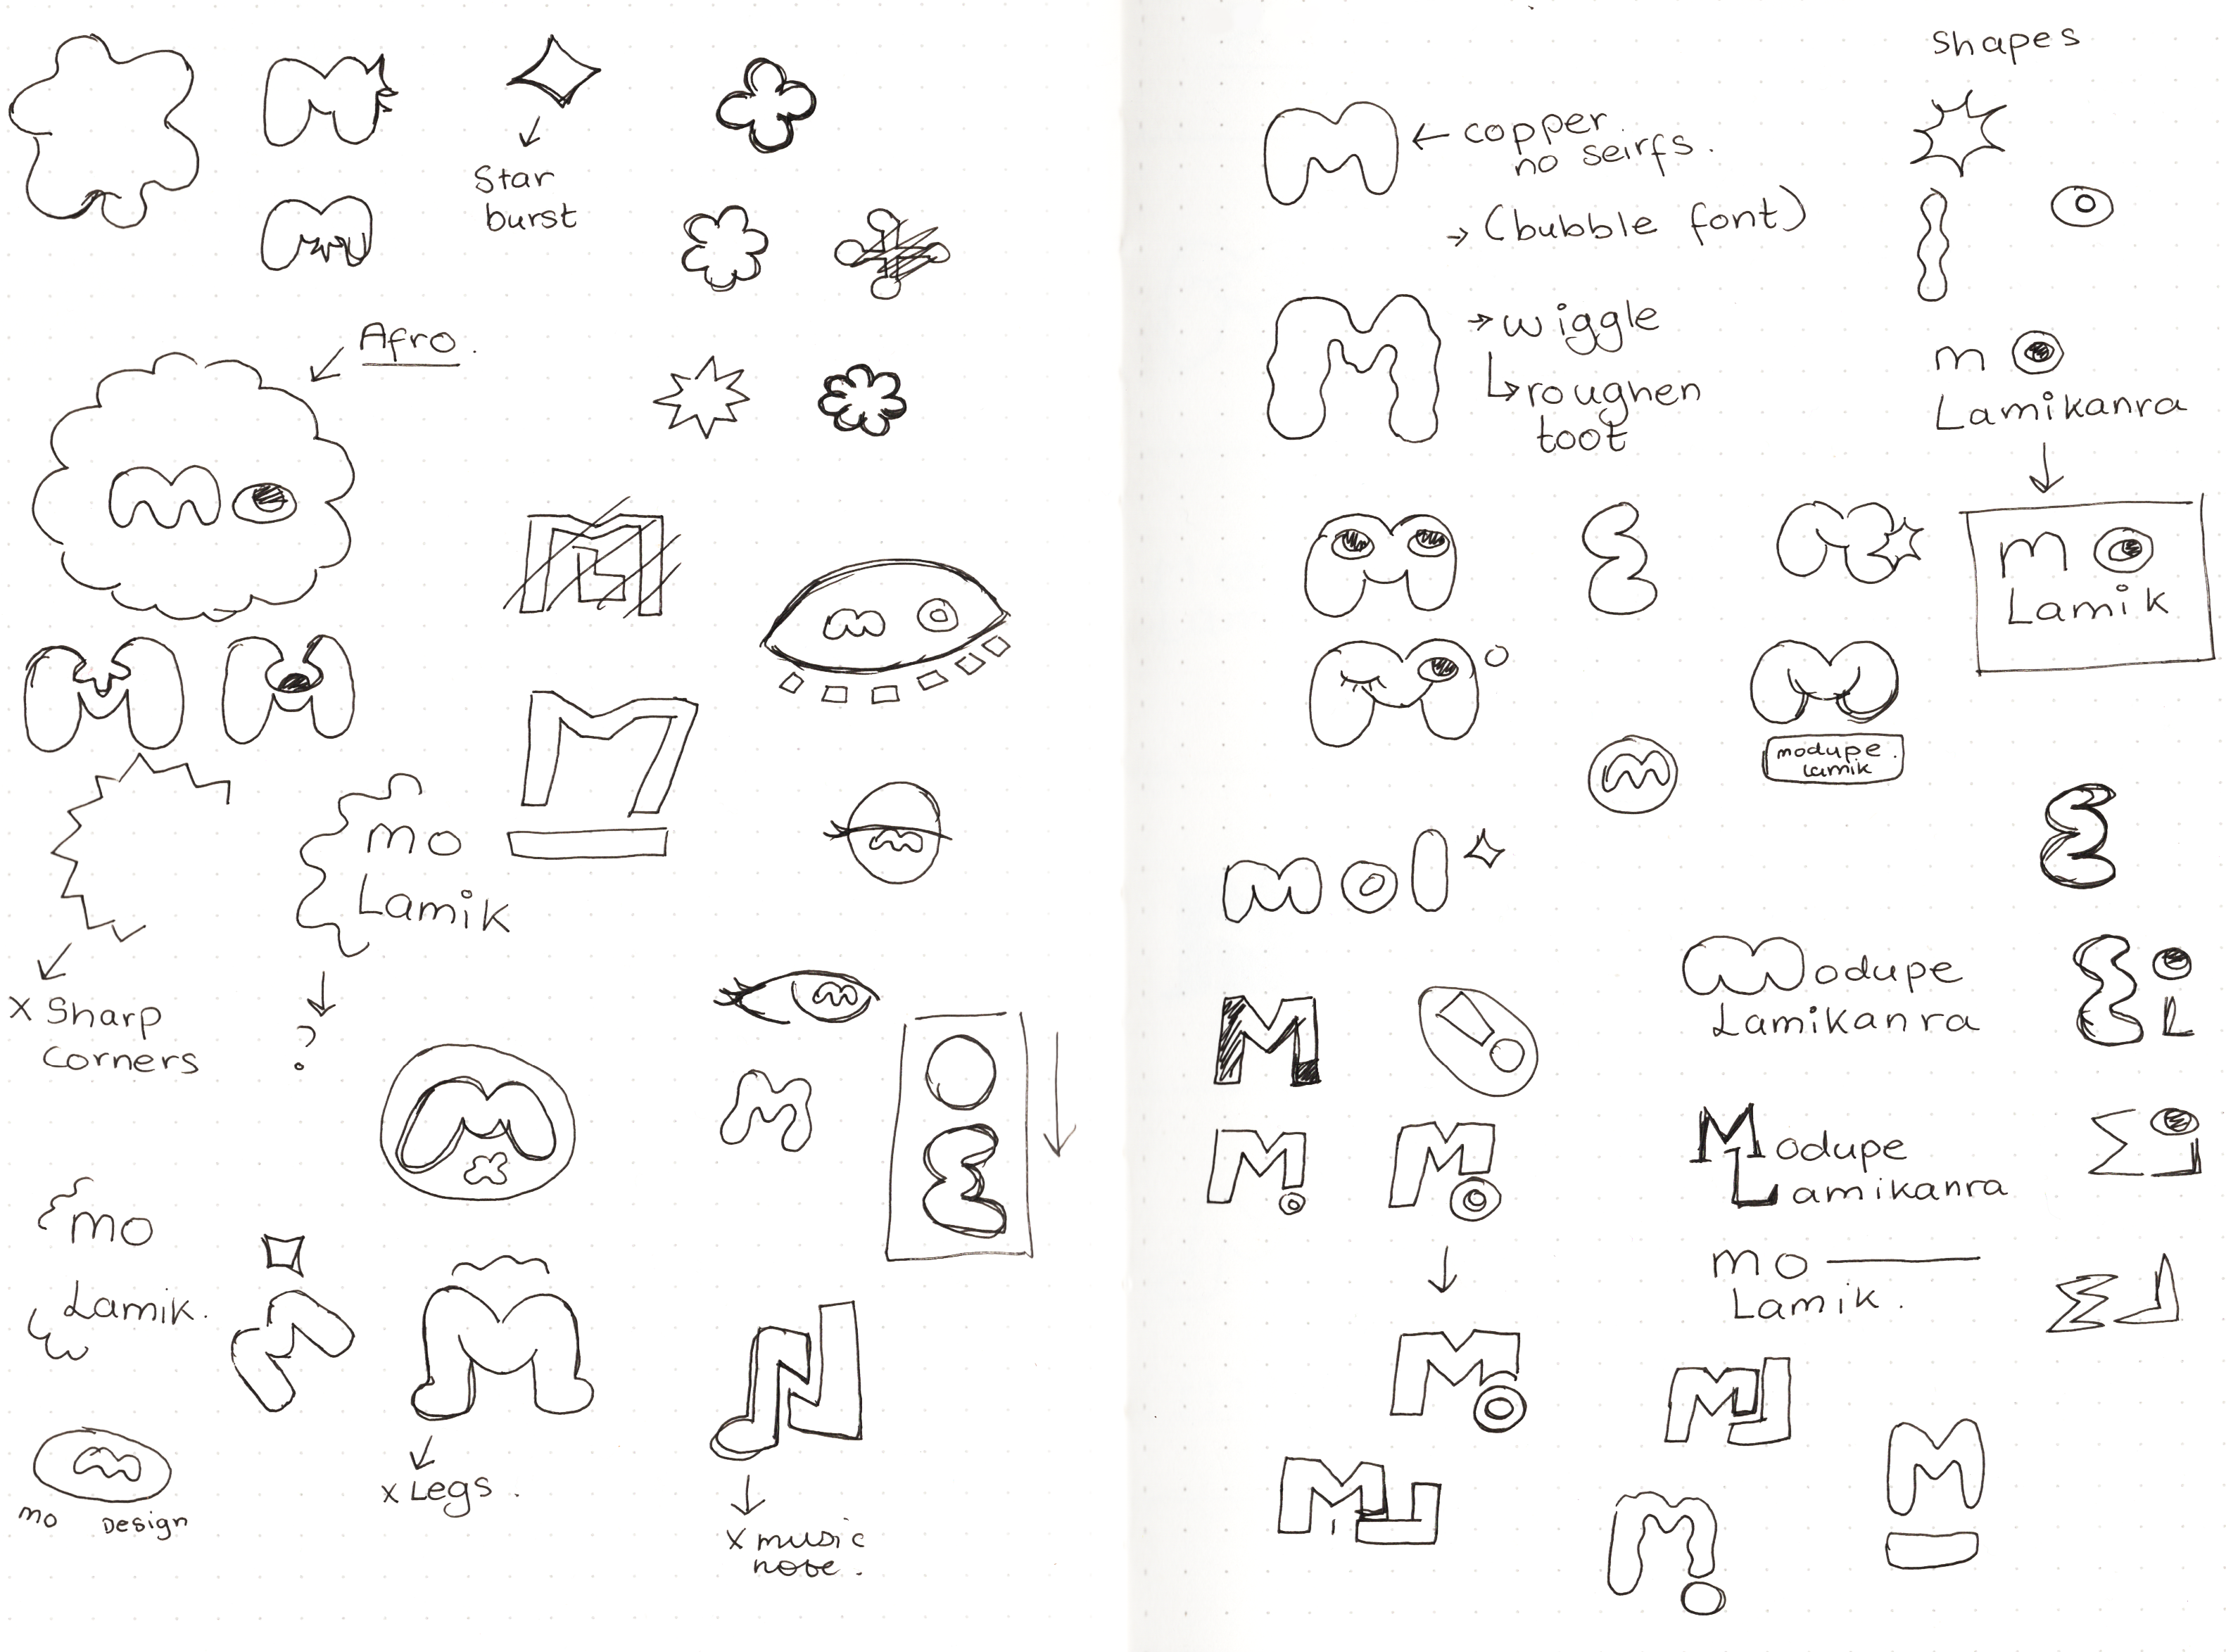 Star
burst
Afro.
mo
mo
mo
Lamik
x Sharp
corners
?
mo
Lamik.
x Legs.
mo Design
x music
note.
Shapes
M ← copper
no seirfs.
→ (bubble font)
M → wiggle
↳ roughen
toot
mo
Lamikanra
mo
Lamik
M
modupe.
Lamik
mol
Modupe
Lamikanra
Modupe
Lamikanra
mo
Lamik.